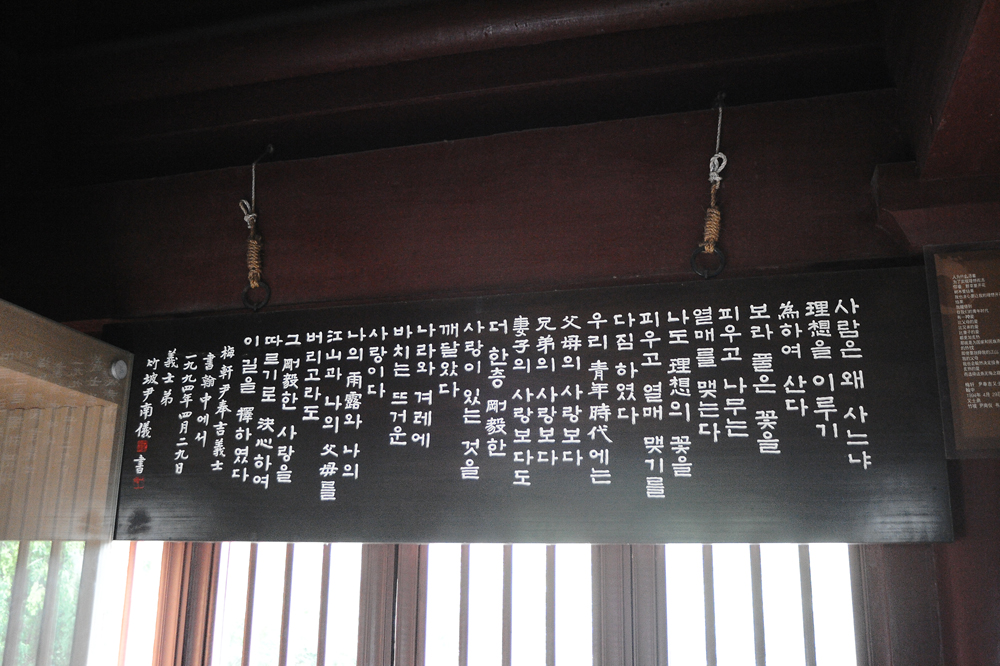 사람은 왜 사느냐
理想을 이루기
爲하여 산다
보라 풀은 꽃을
피우고 나무는
열매를 맺는다
나도 理想의 꽃을
피우고 열매 맺기를
다짐하였다
우리 靑年時代에는
父母의 사랑보다
兄弟의 사랑보다
妻子의 사랑보다도
더 한층 剛毅한
사랑이 있는 것을
깨달았다
나라와 겨레에
바치는 뜨거운
사랑이다
나의 雨露와 나의
江山과 나의 父母를
버리고라도
그 剛毅한 사랑을
따르기로 決心하여
이 길을 擇하였다
梅軒 尹奉吉義士
書翰中에서
一九九四年四月二九日
義士弟
竹坡 尹南儀 書